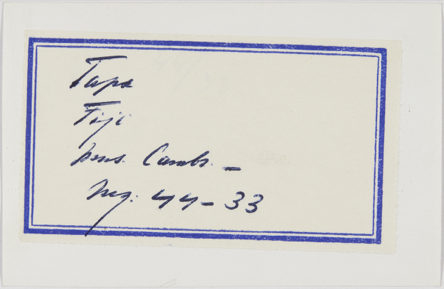 Tapa
Fiji
Mus. Camb. –
Neg. 44-33